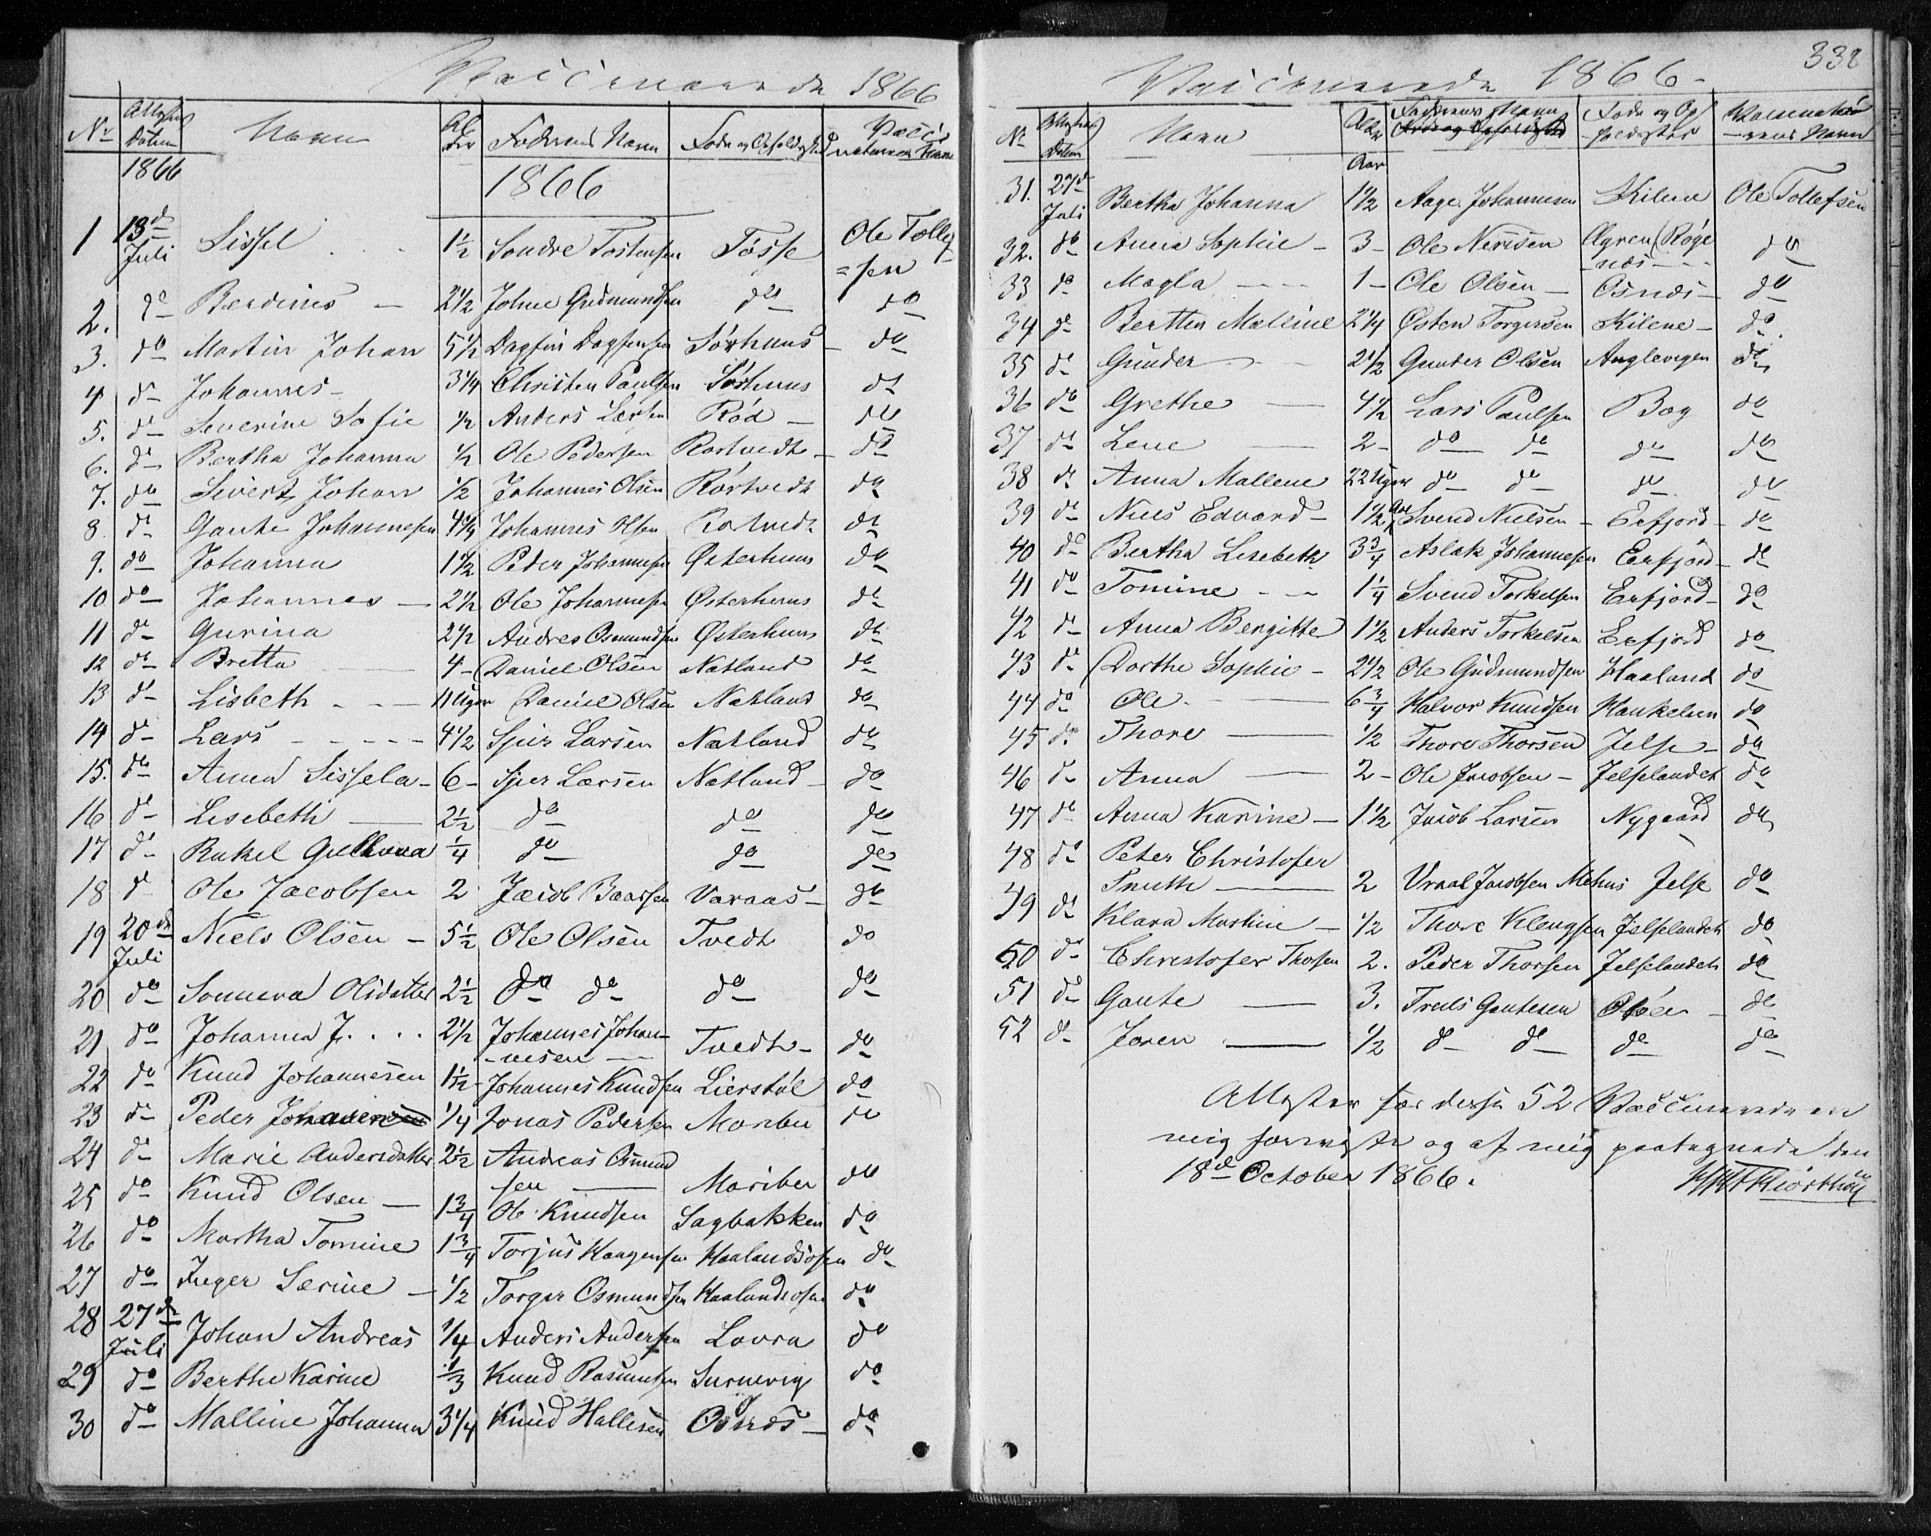 Vaccinerede 1866
Nr Attestens Datum Navn Alder Faderens Navn Føde og Opholdssted Vaccinateurens Navn
1866 1866
1 13de Juli Sissel 1½ Sondre Tostensen Tøsse Ole Tollef=sen
2. do Berdines – 2½ Johne Gudmundsen do do
3. do Martin Johan 5½ Dagfin Dagfinsen Sørhuus – do
4 do Johannes – 3¼ Christen Paulsen Sørhuus do
5. do Severine Sofie ½ Anders Larsen Rød – do
6. do Bertha Johanna ½ Ole Pedersen Rørtvedt – do
7. do Sivert Johan ½ Johannes Olsen Rørtvedt do
8. do Gaute Johannesen 4¼ Johannes Olsen Rørtvedt do
9. do Johanna 1½ Peder Johannesen Østerhuus do
10 do Johannes – 2½ Ole Johannesen Østerhuus do
11 do Gurina 2½ Andreas Osmundsen Østerhuus do
12 do Bretta 4 – Daniel Olsen Natland do
13 do Lisbeth 11 Uger Daniel Olsen Natland do
14 do Lars 4½ Sjur Larsen Natland do
15. do Anna Sissela – 6 – Sjur Larsen Natland – do
16 do Lisebeth 2½ do do do
17 do Rakel Gullova ¼ do do do
18 do Ole Jacobsen 2 Jacob Baarsen Varaas – do
19 20de Juli Niels Olsen – 5½ Ole Olsen Tvedt do
20 do Sonneva Olsdatter 2½ do do do do
21 do Johanna J. . . . 2½ Johannes Johan-nesen Tvedt – do
22 do Knud Johannesen 1½ Johannes Knudsen Lierstøl do
23 do Peder Johannesen ¼ Jonas Pedersen Moriber do
24 do Marie Andersdatter 2½ Andreas Osmundsen Moriber do
25 do Knud Olsen – 1¾ Ole Knudsen Sagbakken do
26 do Martha Tomine 1¾ Torjus Haagensen Haalandsosen do
27 do Inger Serine – ½ Torger Osmundsen Haalandsosen do
28 27de Juli Johan Andreas ¼ Anders Andersen Lovra do
29 do Berthe Karine ⅓ Knud Rasmusen Surnevig do
30 do Malline Johanna 3¼ Knud Hallesen Osnes – do
338
Vaccinerede 1866 –
Nr Attestens Datum Navn Alder Faderens Navn Føde og Opholdssted Vaccinateurens Navn
Aar
31. 27de Juli Bertha Johanna 1½ Aage Johannesen Kilene Ole Tollefsen
32. do Anna Sophie – 3 – Ole Nerisen do
33 do Magla 1 – Ole Olsen – Osnes – do
34 do Bertha Malline 2¼ Østen Torgersen Kilene – do
35 do Gunder 2½ Gunder Olsen Anglevigen do
36 do Grethe 4½ Lars Paulsen Bog do
37 do Lene 2 – do do do do
38 do Anna Mallene 22 Uger do do do do
39 do Niels Edvard – 1½ Aar Svend Nielsen – Erfjord – do
40 do Bertha Lisebeth 3¾ Aslak Johannesen Erfjord – do
41 do Tomine 1¼ Svend Torkelsen Erfjord – do
42 do Anna Bergitte 1½ Anders Torkelsen Erfjord do
43 do Dorthe Sophie – 2½ Ole Gudmundsen Haaland do
44 do Ole 6¾ Halvor Knudsen Haukelien do
45 do Thore ½ Thore Thorsen Jelse – do
46 do Anna 2 – Ole Jacobsen – Jelselandet do
47 do Anna Karine – 1½ Jacob Larsen Nygaard do
48 do Peter Christofer
Smith 2 Vraal Jacobsen Mehus Jelse do
49 do Klara Martine – ½ Thore Klengsen Jelselandet do
50 do Christofer Thorsen 2. Peder Thorsen Jelselandet do
51 do Gaute 3. Troels Gautesen do
52 do Joren ½ do do do do
Attester for disse 52 Vaccinerede ere
mig foreviste og af mig paategnede den
18de October 1866.